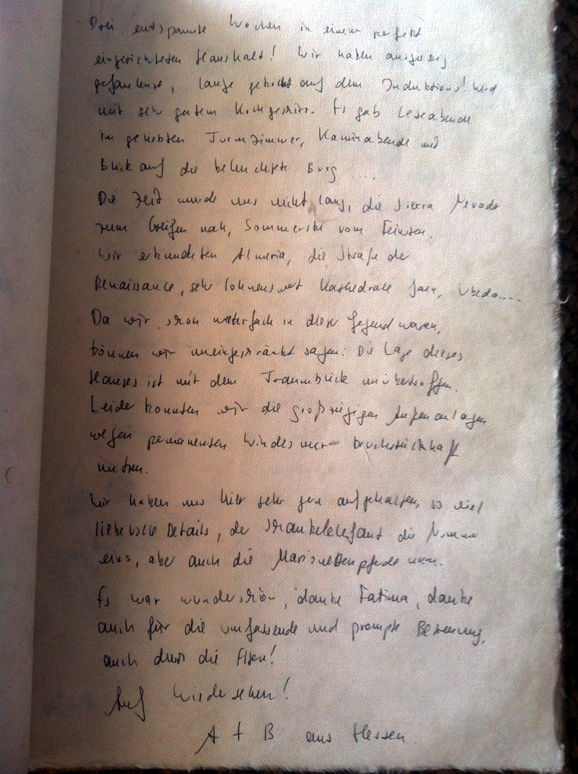 Drei entspannte Wochen in einem perfekt
eingerichteten Haushalt! Wir haben ausgiebig
gefaulenzt, lange gekocht auf dem Induktionsherd
mit sehr gutem Kochgeschirr. Es gab Leseabende
im geliebten Turmzimmer, Kaminabende mit
Blick auf die beleuchtete Burg ...
Die Zeit wurde uns nicht lang, die Sierra Nevada
zum Greifen nah, Sommerski vom Feinsten.
Wir erkundeten Almeria, die Straße der
Renaissance, sehr lohnenswert Kathedrale Jaen, Ubeda....
Da wir schon mehrfach in dieser Gegend waren,
können wir uneingeschränkt sagen: Die Lage dieses
Hauses ist mit dem Traumblick unübertroffen.
Leider konnten wir die großzügigen Außenanlagen
wegen permanenten Windes nur bruchstückhaft
nutzen.
Wir haben uns hier sehr gern aufgehalten, so viel
liebevolle Details, der Schaukelelefant die Nummer
eins, aber auch die Marionettenpferde
Es war wunderschön, danke Fatima, danke
auch für die umfassende und prompte Betreuung,
auch durch die
Auf Wiedersehen!
A + B aus Hessen